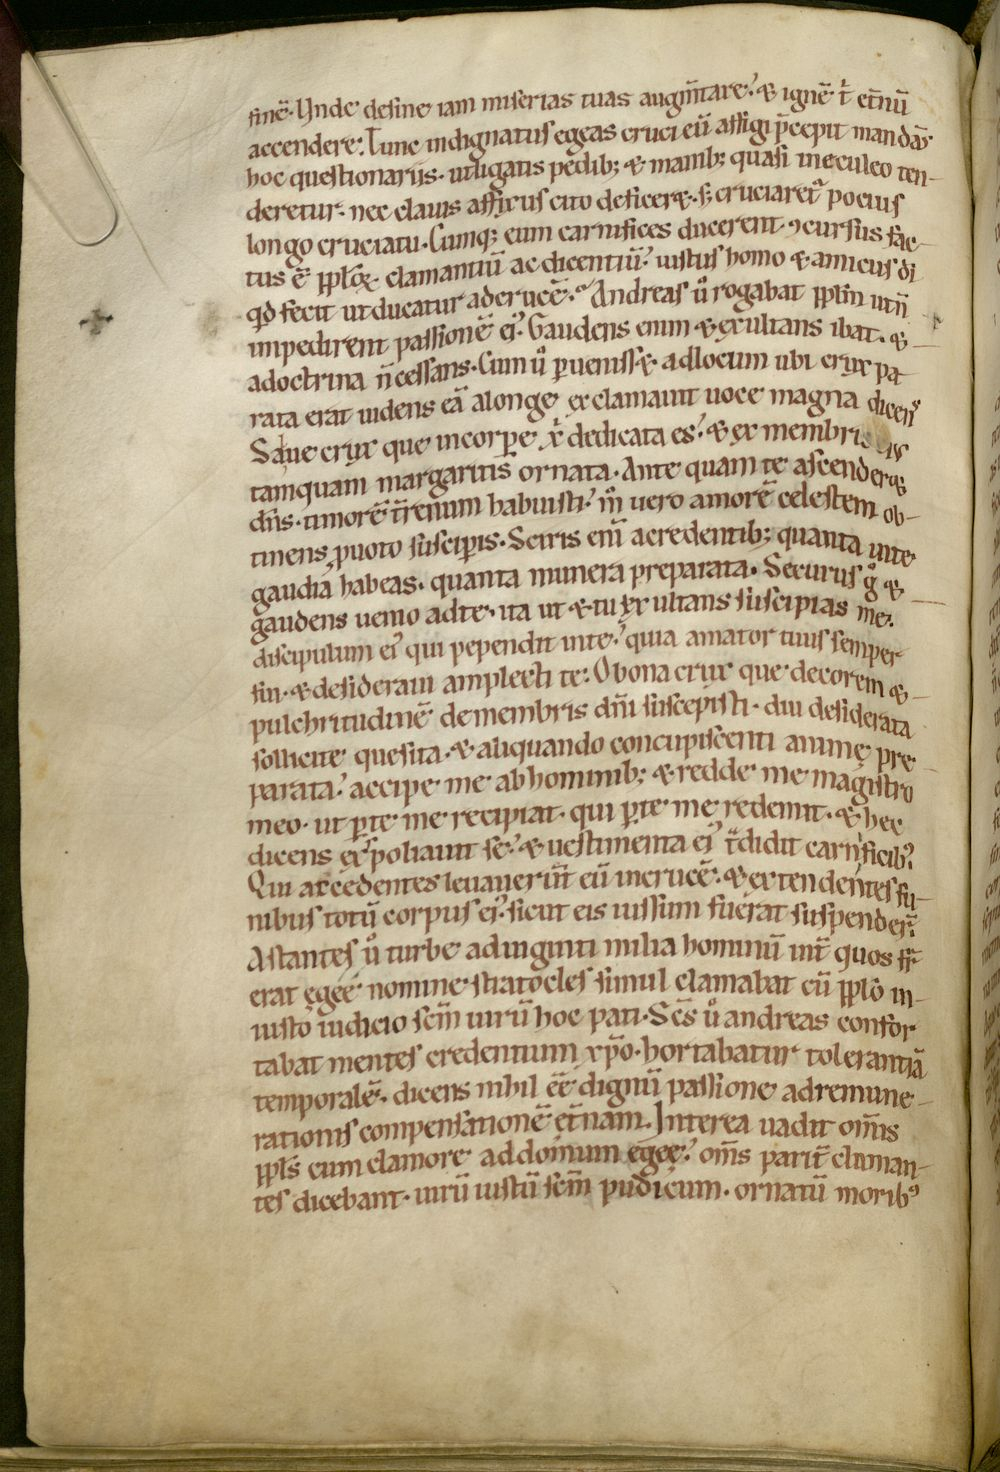 finē. Unde desine iam miserias tuas augm̄tare. & ignē t̄ et̄nū
accendere. Tunc indignatus egeas cruci eū affigi p̄cepit mandās
hoc questionariis. ut ligatis pedib; & manib; quasi in eculeo ten-
deretur. nec clavis affixus cito deficeret. s; cruciaret̄ pocius
longo cruciatu. Cumq; eum carnifices ducerent. ꝯcursus fac-
tus ē pp̄loꝝ clamantiū ac dicentiū. iustus homo & amicus di
qd fecit ut ducatur ad crucē. Andreas ů rogabat pp̄lm ut n̄
impedirent passionē eiꝰ. Gaudens enim & exultans ibat. &
a doctrina n̄ cessans. Cum ů puenisset ad locum ubi crux pa-
rata erat uidens eā a longe exclamauit uoce magna dicens
Salue crux que in corpe xp̄i dedicata es. & ex membris
tamquam margaritis ornata. Ante quam te ascenderet
dn̄s. timorē t̄renum habuisti. m̊ uero amorē celestem ob-
tinens puoto susciperis. Sciris eni a credentib; quanta in te
gaudia habeas. quanta munera preparata. Securus g̊ &
gaudens uenio ad te. ita ut & tu exultans suscipias me.
discipulum eiꝰ qui pependit in te. quia amator tuus semper
fui. & desideraui amplecti te. O bona crux que decorem &
pulchritudinē de membris dn̄i suscepisti. diu desiderata
sollicite quesita. & aliquando concupiscenti animę pre-
parata. accipe me ab hominib; & redde me magistro
meo. ut p te me recipiat. qui p te me redemit. & hec
dicens exspoliauit se. & uestimenta eiꝰ t̄didit carnificibꝰ.
Qui accedentes leuauerun̄t eū in crucē. & extendentes fu-
nibus totū corpus eiꝰ. sicut eis iussum fuerat suspender̄.
Astantes ů turbe ad uiginti milia hominū int̄ quos fr̄
erat egeę nomine stratocles simul clamabat cū pp̄lo in-
iusto iudicio scm̄ uirū hoc pati. Scs̄ ů andreas confor
tabat mentes credentium xp̄o. hortabatur tolerantiā
temporalē. dicens nihil eē dignū passione ad remune-
rationis compensationē et̄nam. Interea uadit om̄is
pp̄ls cum clamore ad domum egeę. om̄s parit̄ claman-
tes dicebant. uirū iustū scm̄ pudicum. ornatū moribꝰ